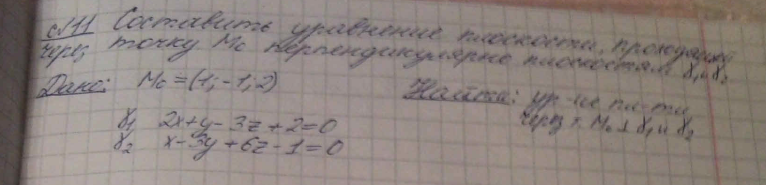 с/11 Составить уравнение плоскости, проходящей
через точку M₀ перпендикулярно плоскостям γ₁ и γ₂
Дано: M₀ = (1; -1; 2) Найти: ур-ие пл-ти
через т. M₀ ⊥ γ₁ и γ₂
γ₁ 2x+y-3z+2=0
γ₂ x-3y+6z-1=0